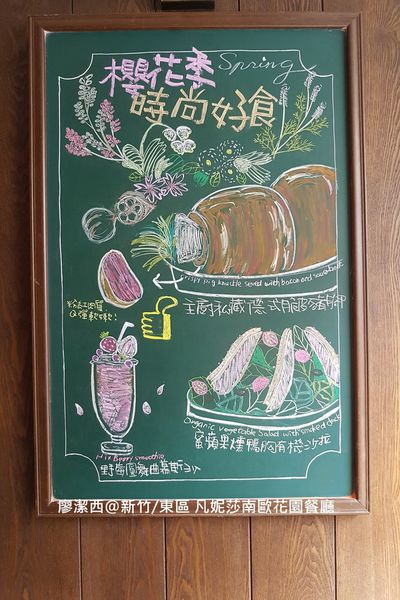 櫻花季 Spring
時尚好食
Crispy pig knuckle served with bacon and sauerkraut
主廚私藏德式脆皮豬腳
粉紅肉質
Q彈軟嫩!
Organic vegetable Salad with smoked duck
蜜蘋果燻鴨胸有機沙拉
Mix Berry smoothie
野莓圓舞曲慕斯
廖潔西@新竹/東區 凡妮莎南歐花園餐廳